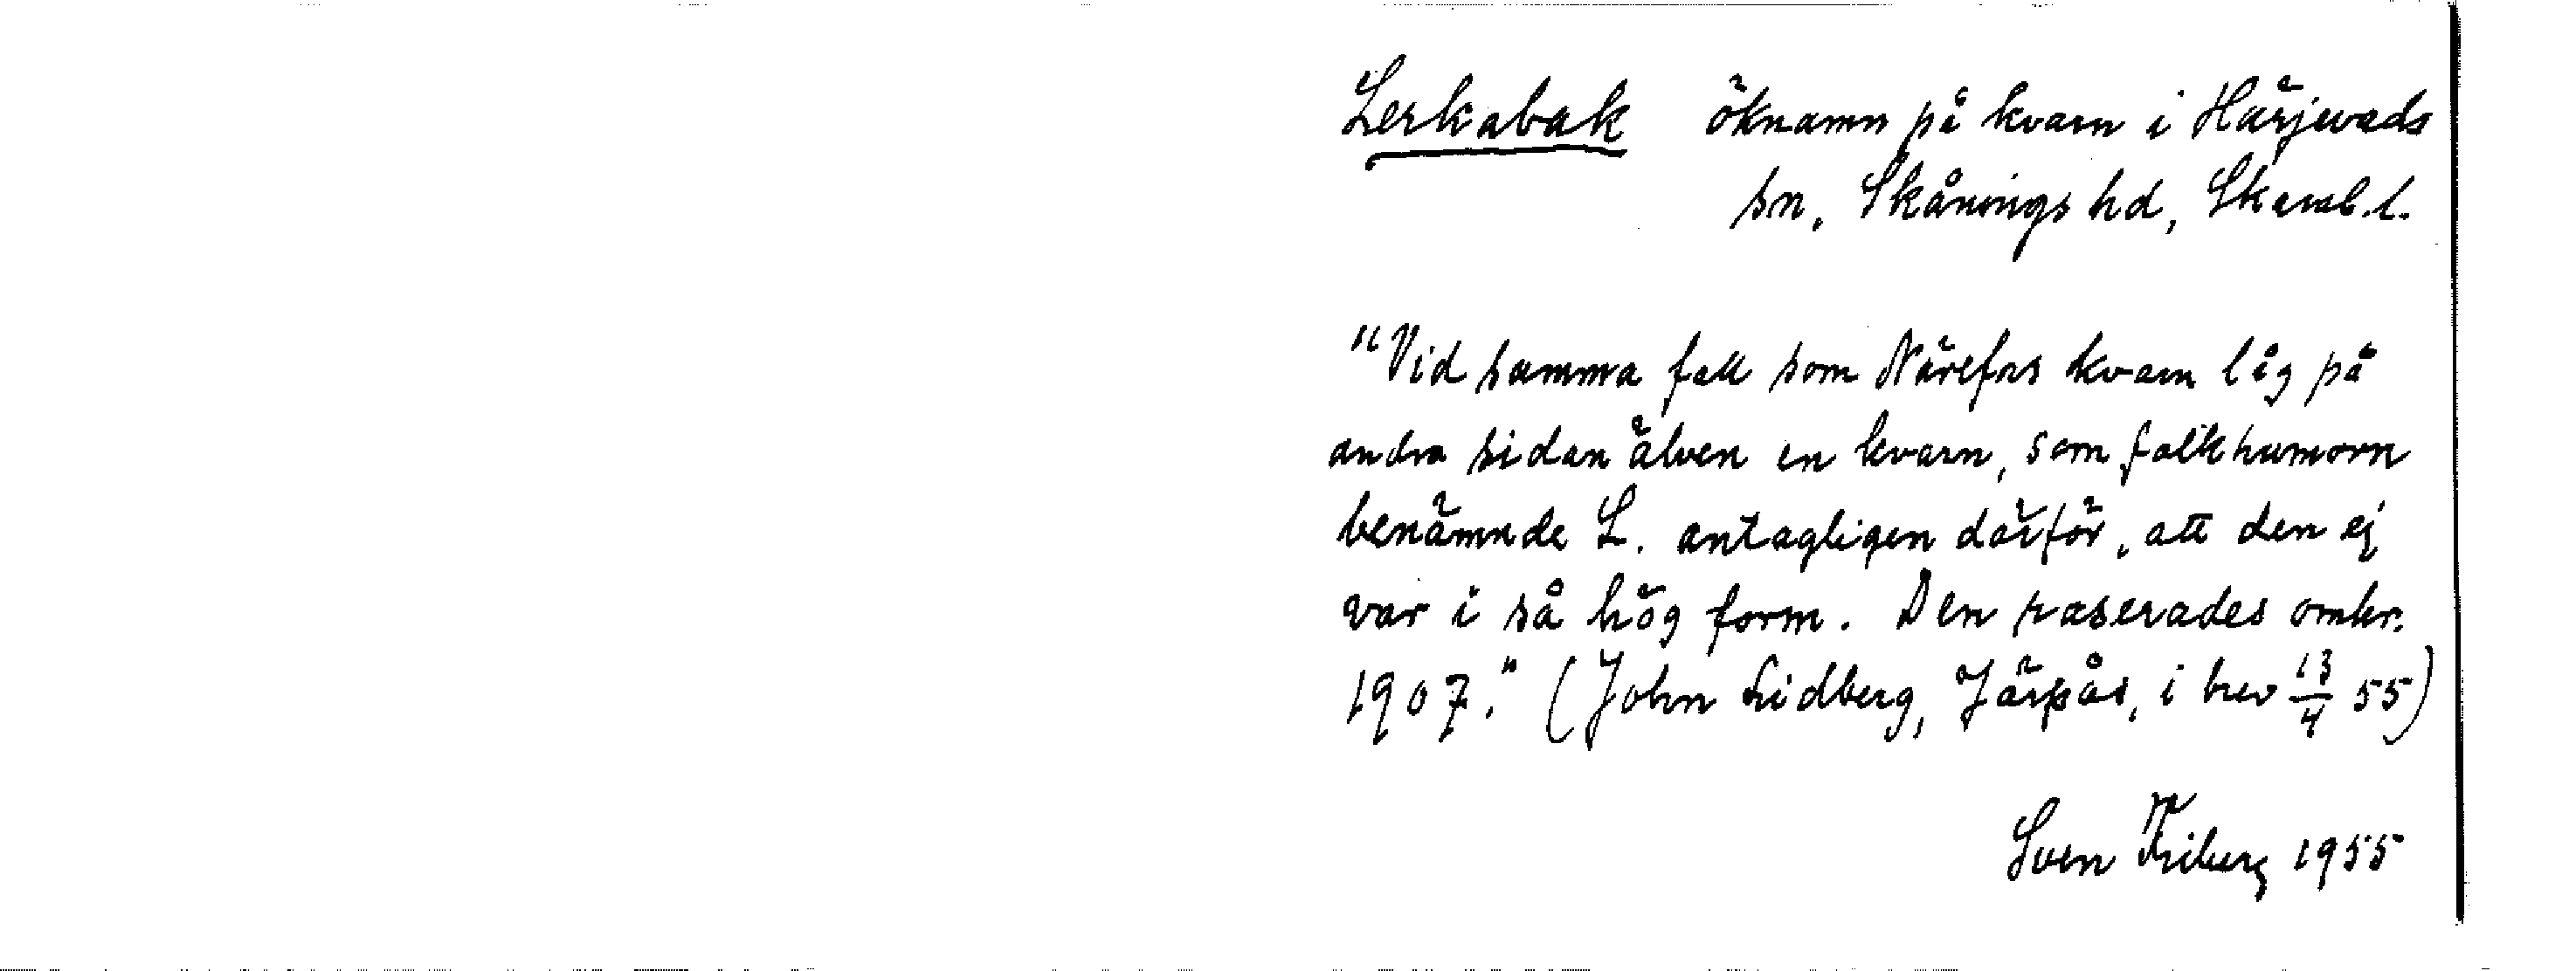 Lerkabak öknamn på kvarn i Härjevads
sn, Skånings hd, Skarab. l.
"Vid samma fall som Närefors kvarn låg på
andra sidan älven en kvarn, som folkhumorn
benämnde L. antagligen därför, att den ej
var i så hög form. Den raserades omkr.
1907." (John Lidberg, Järpås, i brev 13/4 55)
Sven Friberg 1955